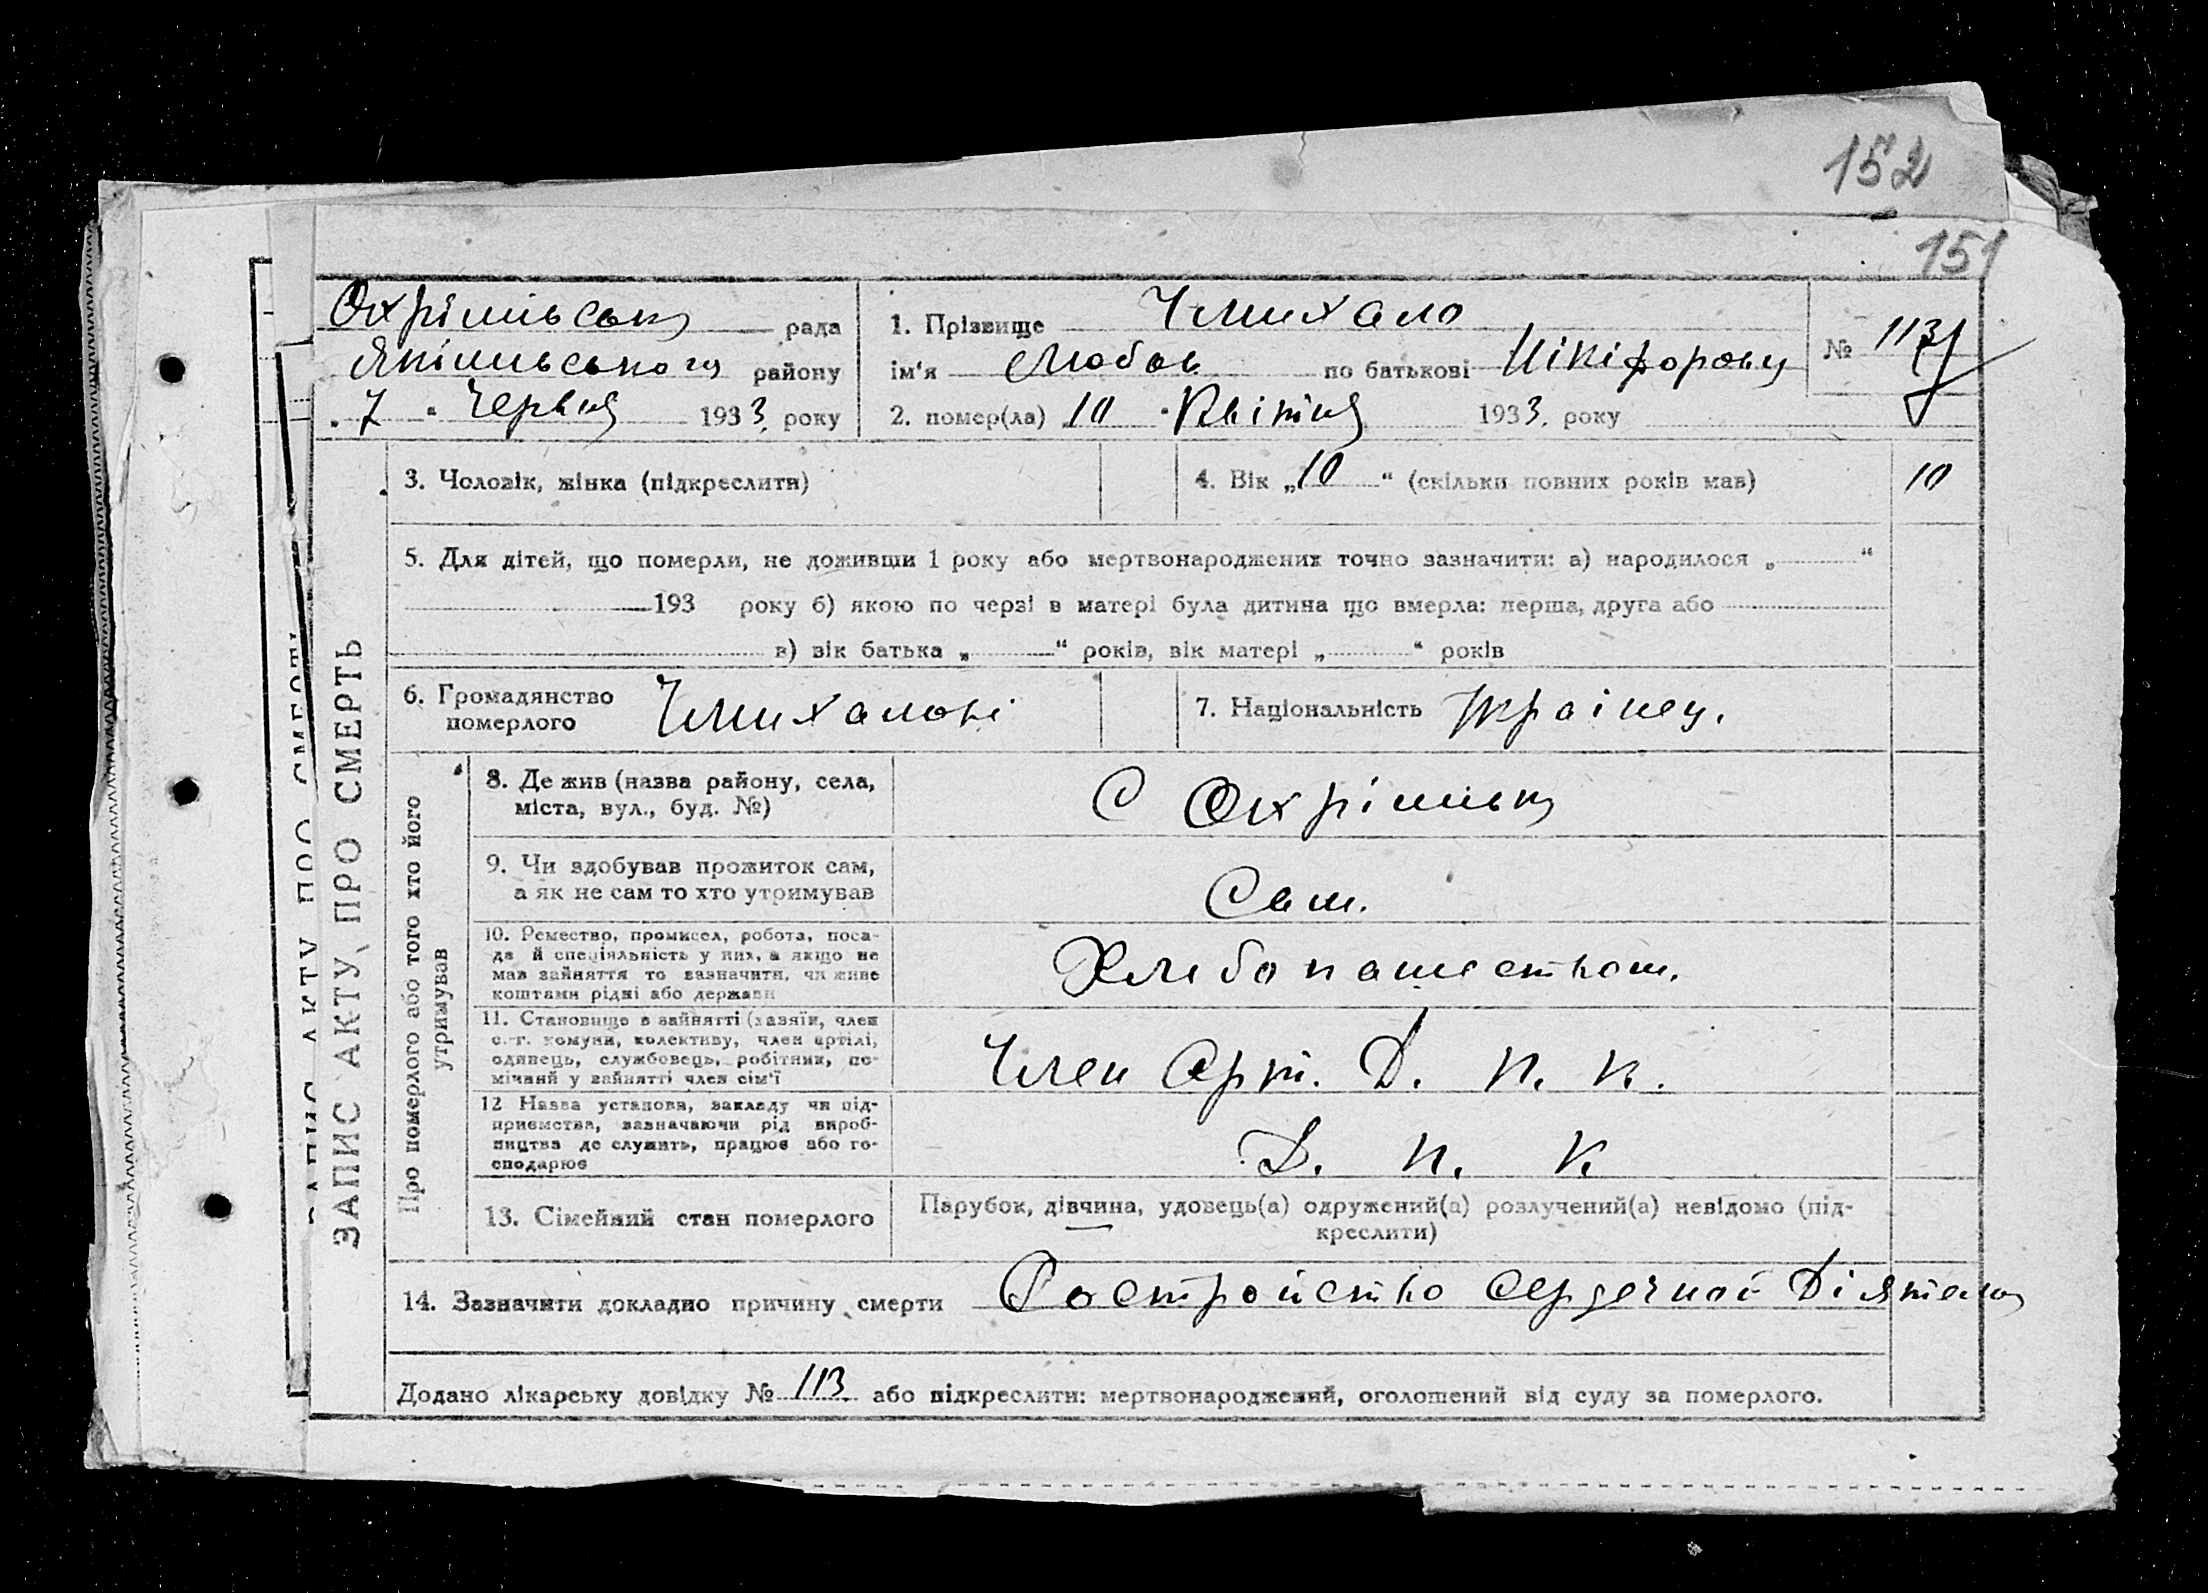 152
151
Охрімівська рада
Якімівського району
„ 7 “ Червня 1933 року
1. Прізвище Чмихало
ім'я Любов по батькові Нікіфоровна
№ 113
2. помер(ла) 10 “ Квітня 1933. року
ЗАПИС АКТУ ПРО СМЕРТЬ
3. Чоловік, жінка (підкреслити)
4. Вік „10“ (скільки повних років мав) 10
5. Для дітей, що померли, не доживши 1 року або мертвонароджених точно зазначити: а) народилося „ “
193 року б) якою по черзі в матері була дитина що вмерла: перша, друга або
в) вік батька „ “ років, вік матері „ “ років
6. Громадянство
померлого
7. Національність Украінец.
Про померлого або того хто його
утримував
8. Де жив (назва району, села,
міста, вул., буд. №)
С Охрімівка
9. Чи здобував прожиток сам,
а як не сам то хто утримував
Сам.
10. Ремество, промисел, робота, поса-
да й спеціяльність у них, а якщо не
мав зайняття то зазначити, чи живе
коштами рідні або держави
Хлебопашеством.
11. Становище в зайнятті (хазяїн, член
с.-г. комуни, колективу, член артілі,
одинець, службовець, робітник, по-
мічний у зайнятті член сім'ї
Член Арт. Д. Н. К.
12 Назва установи, закладу чи під-
приємства, зазначаючи рід вироб-
ництва де служить, працює або го-
сподарює
Д. Н. К
13. Сімейний стан померлого
Парубок, дівчина, удовець(а) одружений(а) розлучений(а) невідомо (під-
креслити)
14. Зазначити докладно причину смерти Востройство сердечной Діятельн
Додано лікарську довідку № 113 або підкреслити: мертвонароджений, оголошений від суду за померлого.